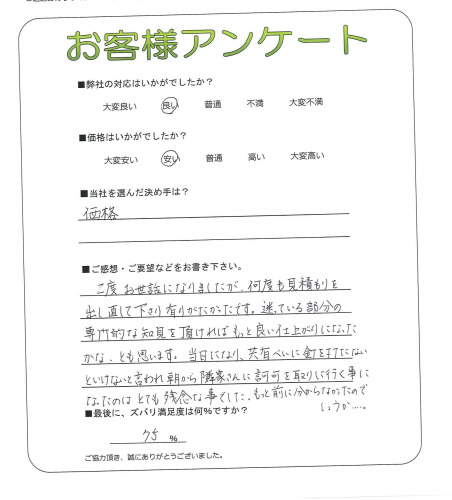 お客様アンケート
■弊社の対応はいかがでしたか?
大変良い 良い 普通 不満 大変不満
■価格はいかがでしたか?
大変安い 安い 普通 高い 大変高い
■当社を選んだ決め手は?
価格
■ご感想・ご要望などをお書き下さい。
二度お世話になりましたが、何度も見積もりを
出し直して下さり有りがたかったです。迷っている部分の
専門的な知見を頂ければもっと良い仕上がりになった
かな、とも思います。当日になり、共有べいに釘を打たない
といけないと言われ朝から隣家さんに許可を取りに行く事に
なったのはとても残念な事でした。もっと前に分からなかったので
しょうか……。
■最後に、ズバリ満足度は何%ですか?
75 %
ご協力頂き、誠にありがとうございました。